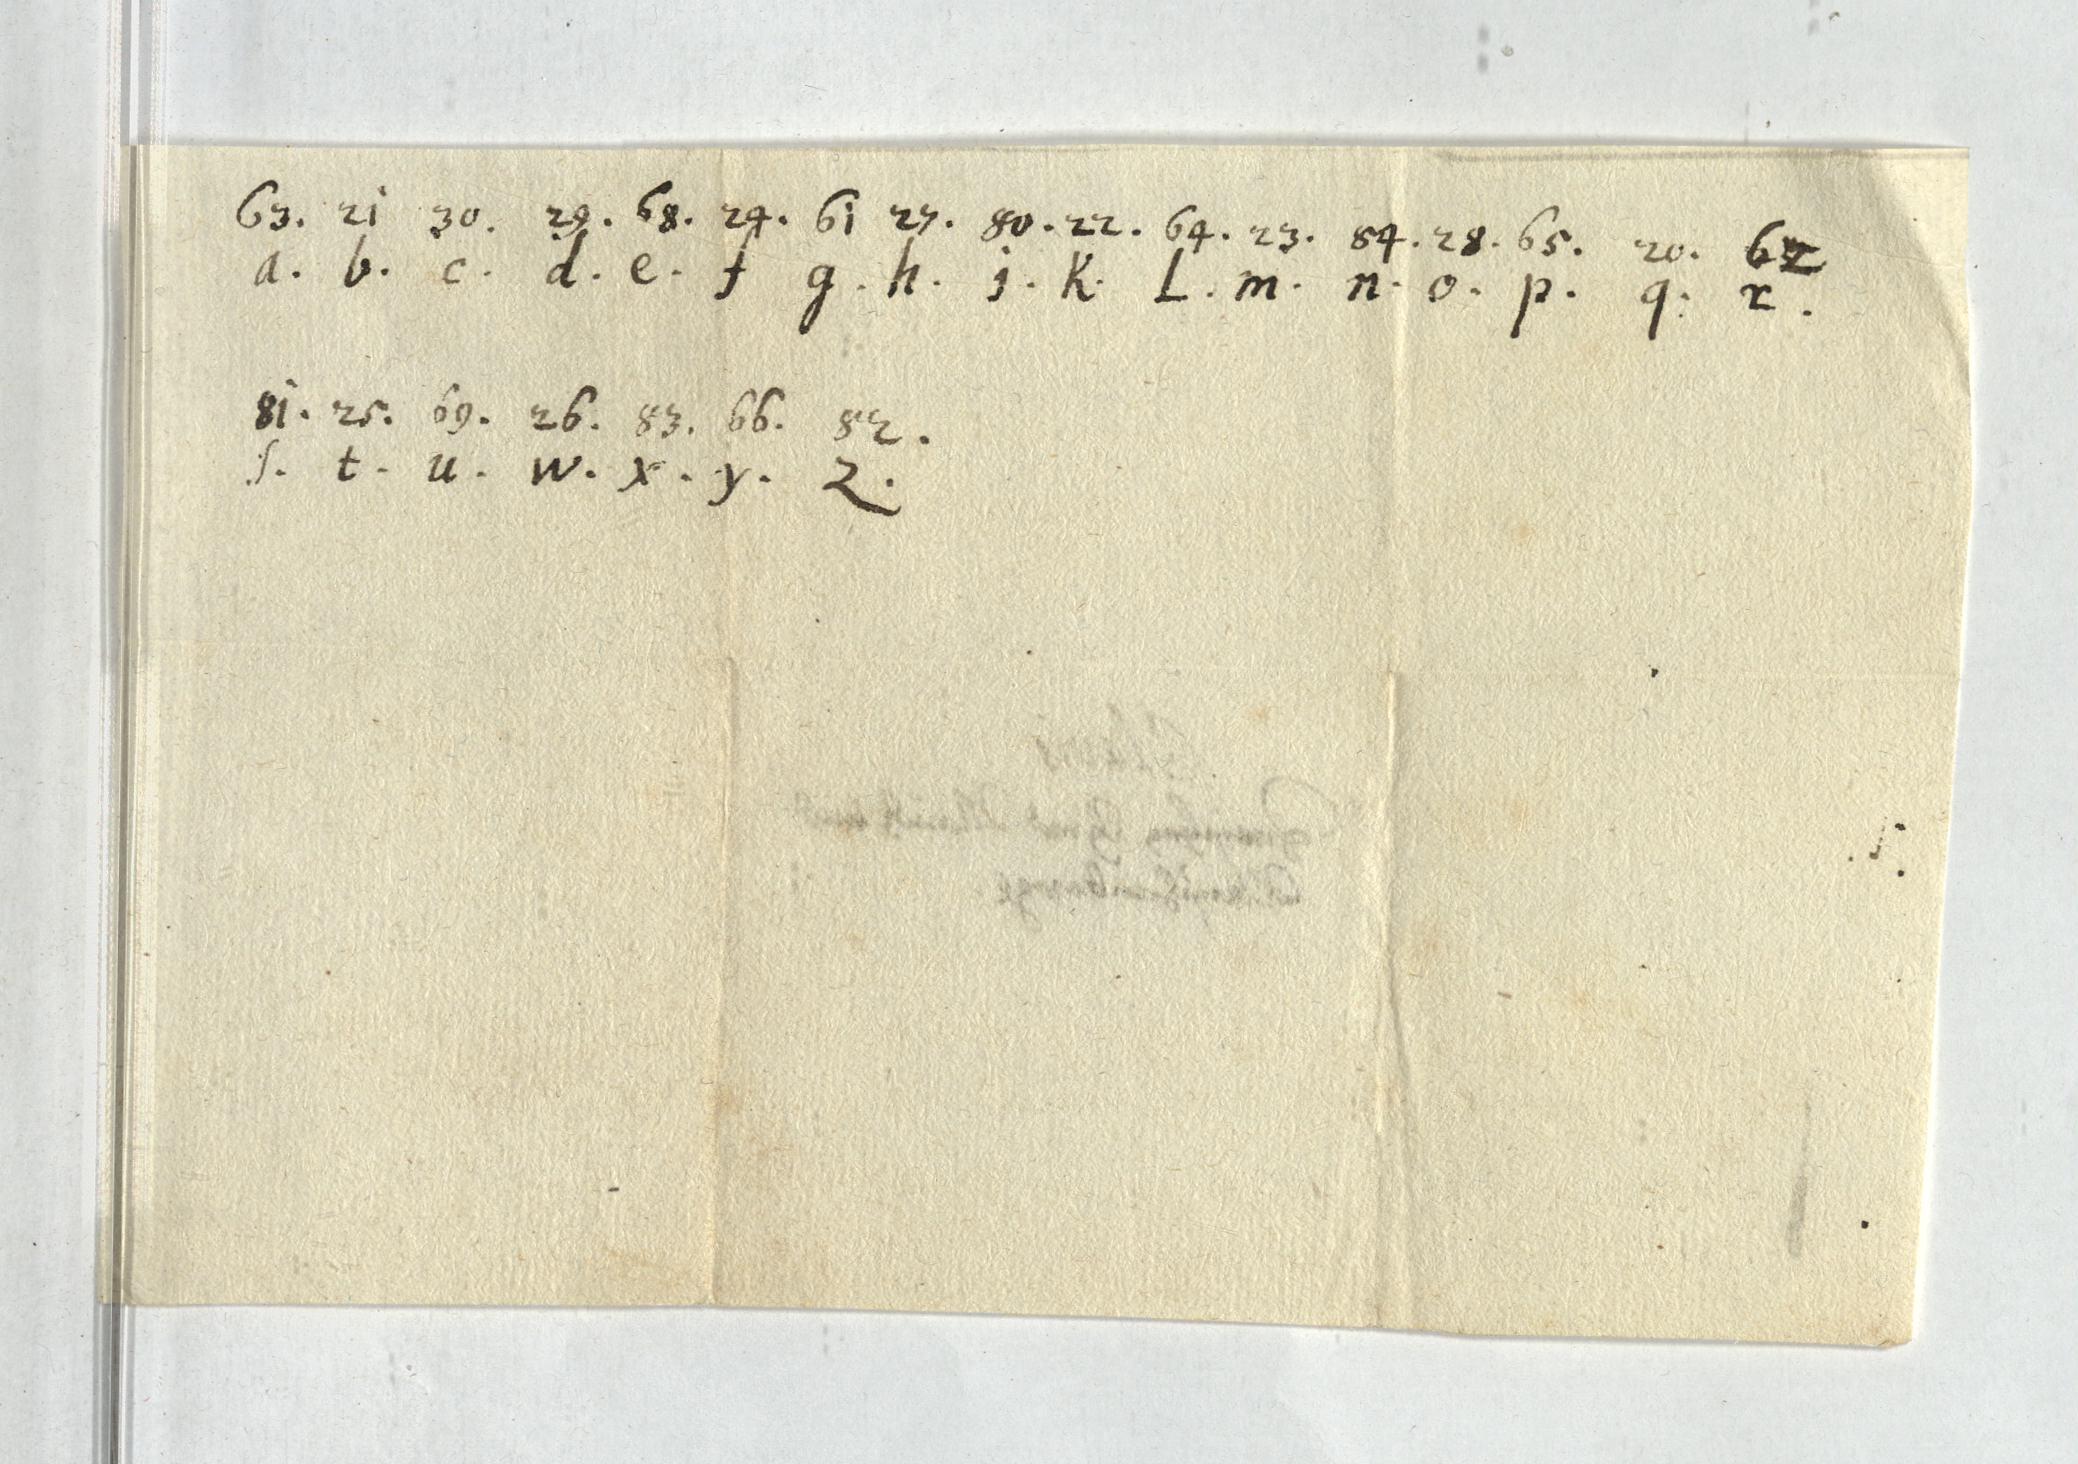 63. 21 30. 29. 68. 24. 61 27. 80. 22. 64. 23. 84. 28. 65. 20. 62
a. b. c. d. e. f g. h. i. k. L. m. n. o. p. q. r.
81. 25. 69. 26. 83. 66. 82.
ſ. t. u. w. x. y. z.